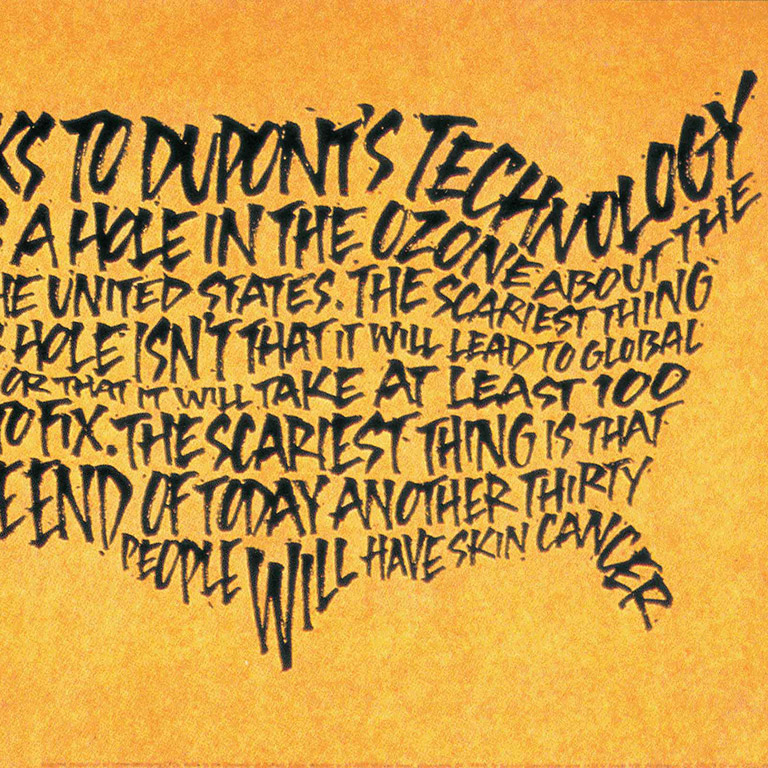 KS TO DUPONT'S TECHNOLOGY
A HOLE IN THE OZONE ABOUT THE
HE UNITED STATES. THE SCARIEST THING
HOLE ISN'T THAT IT WILL LEAD TO GLOBAL
OR THAT IT WILL TAKE AT LEAST 100
TO FIX. THE SCARIEST THING IS THAT
E END OF TODAY ANOTHER THIRTY
PEOPLE WILL HAVE SKIN CANCER